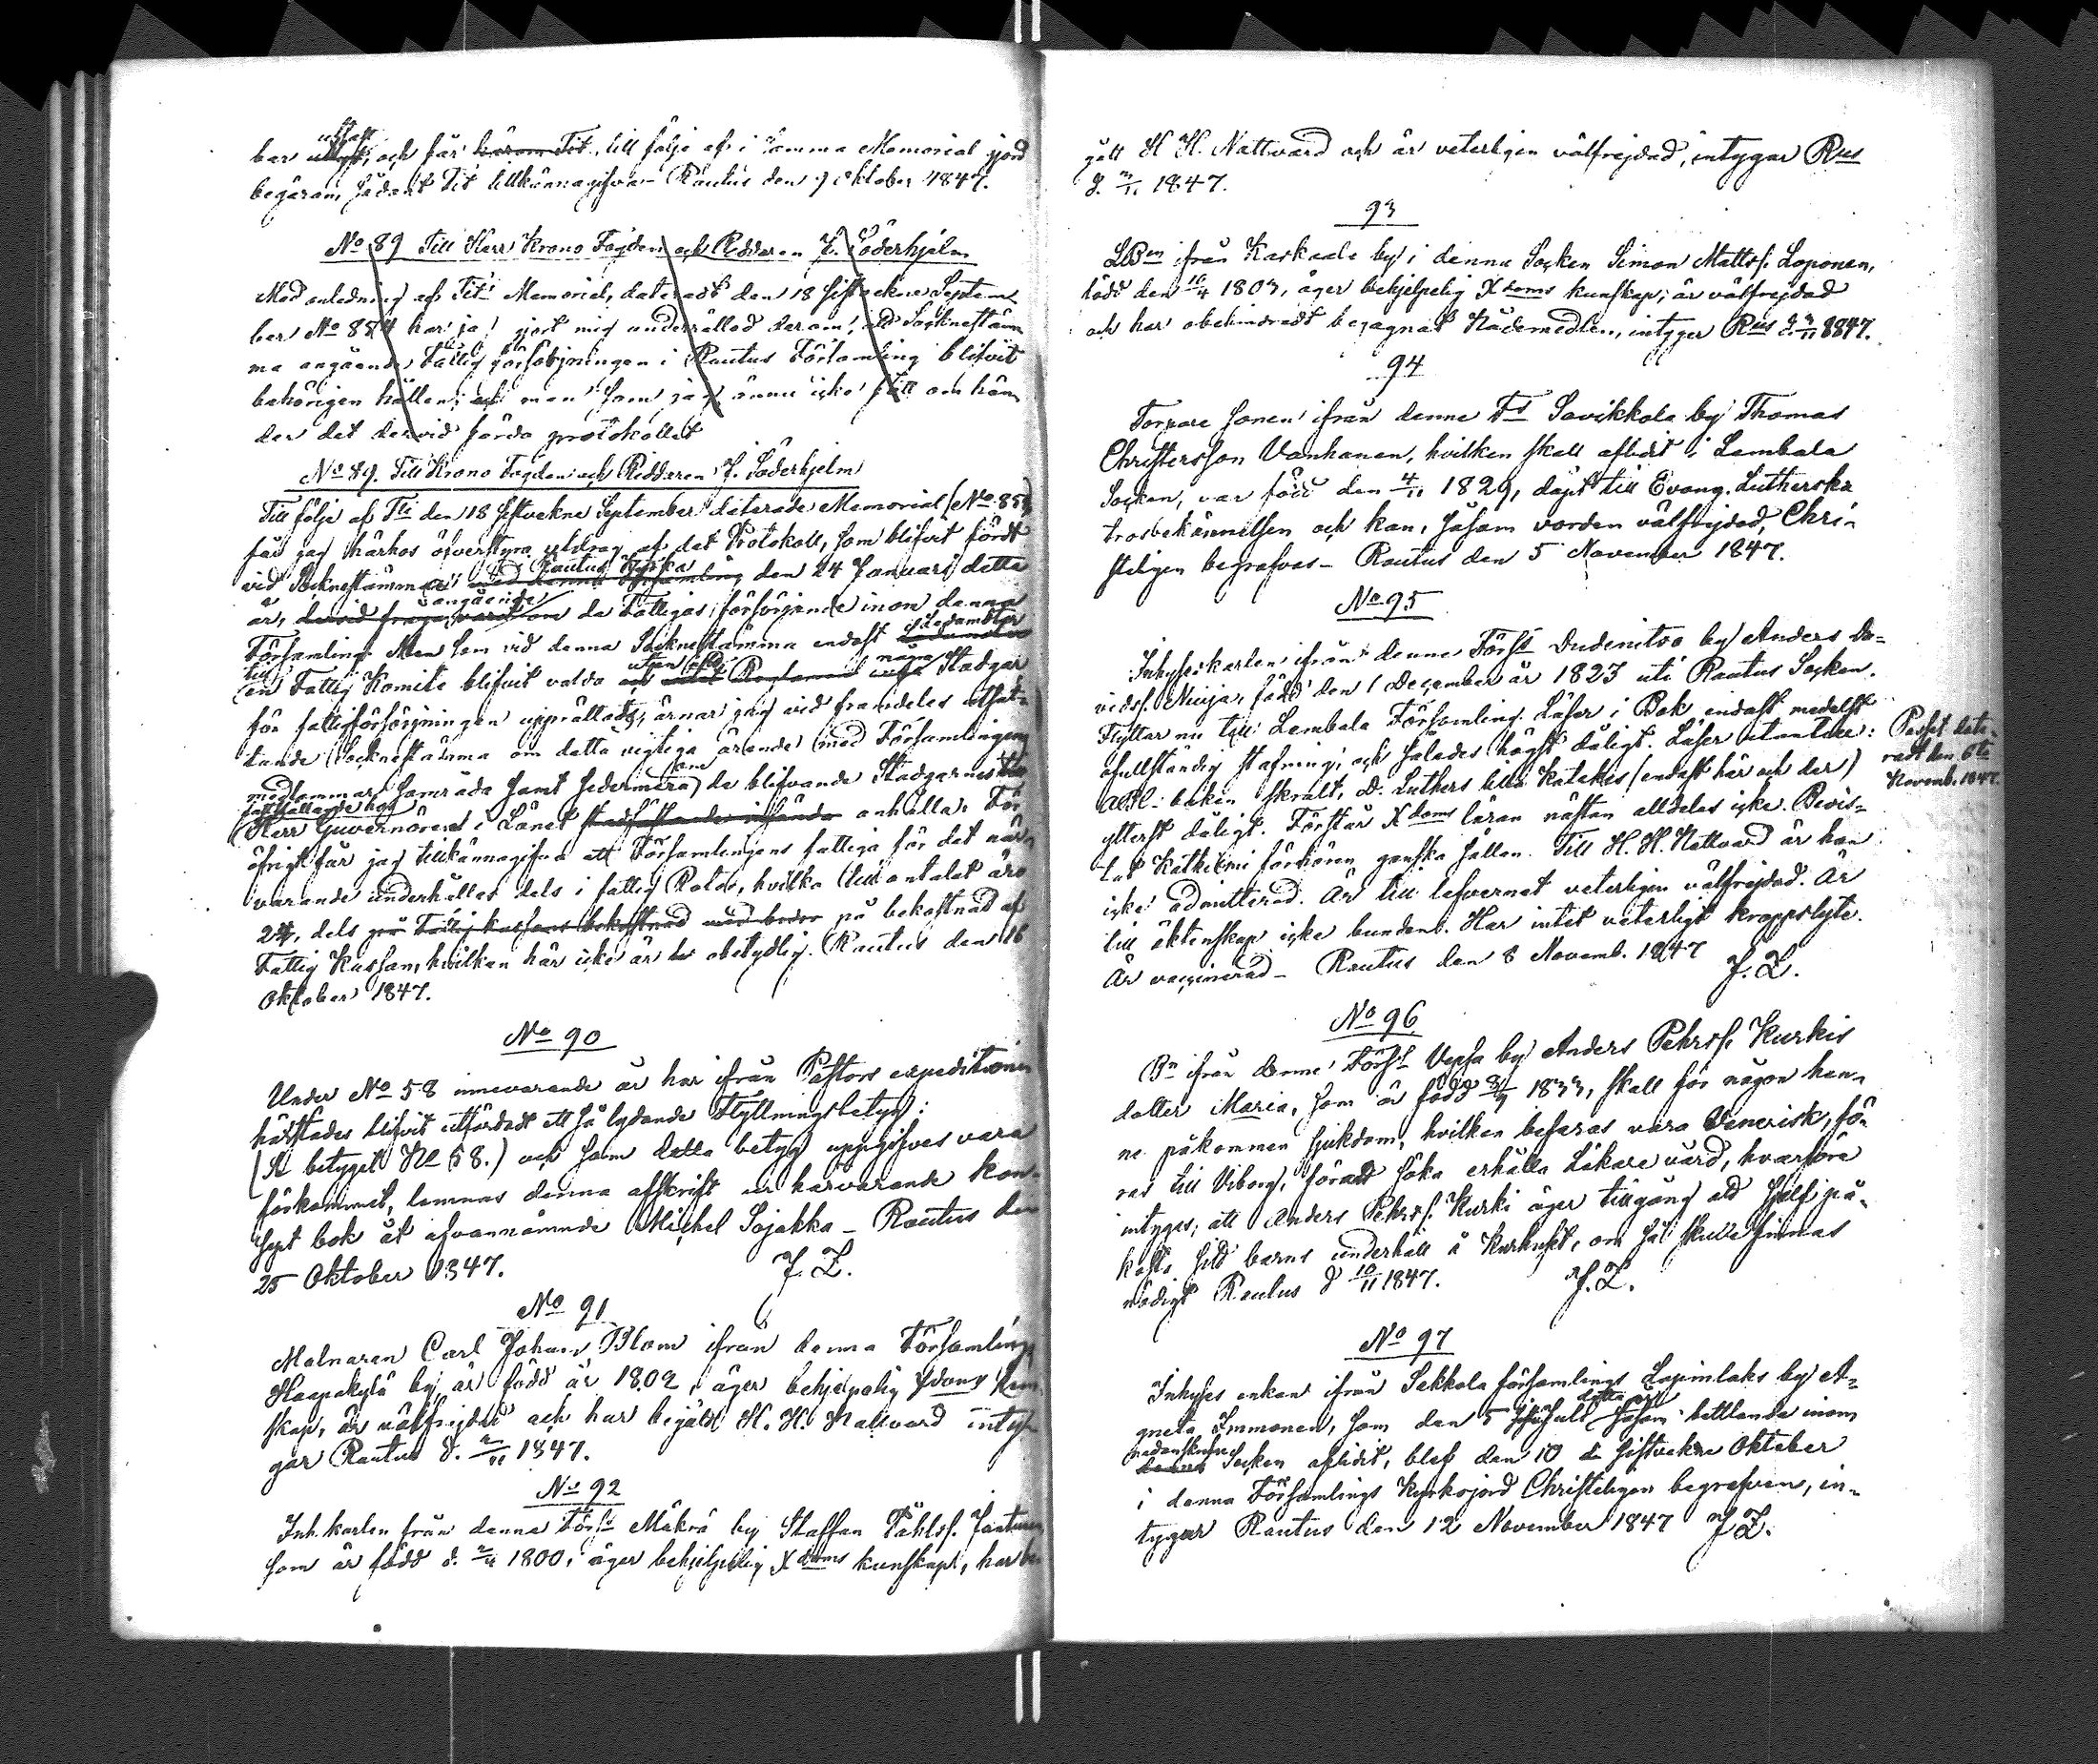 ber utsatt, och får härom Tit. till följe af i samma Memorial gjord
begäran, sådant Tit tillkännagifva – Rautus den 9 Oktober 1847.
No 89 Till Herr Krono Fogden och Riddaren J. Söderhjelm
Med anledning af Tit: Memorial, dateradt den 18 sistvekne Septem-
ber No 854 har jag gjort mig underrättad derom, att Socknestäm
ma angående Fattig försörjningen i Rautus Församling blifvit
behörigen hållen; men som jag ännu icke fått om hän
der det dervid förda protokollet
No 89. Till Krono Fogden och Riddaren J. Söderhjelm
Till följe af Tit: den 18 sistvekne September daterade Memorial (No 854)
får jag härhos öfverstyra utdrag af det Protokoll, som blifvit fördt
vid Socknestämma i Rautus Kyrka den 24 Januari detta
år, angående de Fattigas försörjande inom denna
Församling. Men som vid denna Socknestämma endast Ledamöter
till en Fattig Komite blifvit valda utan att några Stadgar
för fattigförsörjningen upprättats, ärnar jag vid framdeles utsät-
tande Socknestämma om detta vigtiga ärende med Församlingens
medlemmar samråda samt sedermera om de blifvande Stadgarnes
fastställande hos
Herr Guvernören i Länet anhålla. För
öfrigt får jag tillkännagifva att Församlingens fattiga för det när-
varande underhållas dels i fattig Rotar, hvilka till antalet äro
24, dels på Fattig kassans bekostnad på bekostnad af
Fattig Kassan, hvilken här icke är obetydlig. Rautus den 16
Oktober 1847.
No 90
Under No 58 innevarande år har ifrån Pastors expeditionen
härstädes blifvit utfärdadt ett så lydande Flyttningsbetyg:
(Se betyget No 58.) och som detta betyg uppgifves vara
förkommet, lemnas denna afskrift ur härvarande Kon-
sept bok åt ofvannämnde Michel Sojakka – Rautus den
25 Oktober 1847. J. Z.
No 91
Malnaren Carl Johan Blom ifrån denna Församling
Haapakylä by, är född år 1802, äger behjelpelig Xdoms kun-
skap, är välfrejdad och har begått H. H. Nattvard intyg-
gar Rautus d. 1847.
No 92
Inh. karlen från denna Förs: Mäkrä by Staffan Påhlss.
som är född d. 1800, äger behjelpelig X doms kunskap, har be
gått H H. Nattvard och är veterligen välfrejdad, intygar Rus
d. 1847.
93
LBen ifrån Kaskaala by i denna Socken Simon Mattss. Loponen,
född den 10/4 1803, äger behjelpelig X doms kunskap; är välfrejdad
och har obehindradt begagnat Nådemedlen, intygar Rus d. 1847.
94
Torpare sonen ifrån denne Fs Savikkola by Thomas
Christersson Vanhanen, hvilken skall aflidit i Lembala
Socken, var född den 4/11 1829, döpt till Evang. Lutherska
trosbekännelsen och kan, såsom vorden välfrejdad, Chri-
steligen begrafvas – Rautus den 5 November 1847.
No 95
Inhyses karlen ifrån denna Förs: Dudenitso by Anders Da-
vidss. född den 1 December år 1823 uti Rautus Socken.
Flyttar nu till Lembala Församling. Läser i Bok endast medelst
ofullständig stafning, och således högst dåligt. Läser utantill:
ABC-boken skralt, D: Luthers lilla Katekes (endast här och der)
ytterst dåligt. Förstår X doms läran nästan alldeles icke. Bevis-
tat Katkismi förhören ganska sällan. Till H. H. Nattvard är han
icke admitterad. Är till lefvernet veterligen välfrejdad. Är
till äktenskap icke bunden. Har intet veterligt kroppslyte.
Är vaccinerad – Rautus den 8 Novemb. 1847 J. Z.
Passet date-
radt den 6te
Novemb. 1847.
No 96
Bn ifrån denne Förs: Vepsa by Anders Pehrss. Kurkis
dotter Maria, som är född 1833, skall för någon hen-
ne påkommen sjukdom, hvilken befaras vara Venerisk, fö-
ras till Viborg, föratt söka erhålla Läkare vård, hvarföre
intygas, att Anders Pehrss. Kurki äger tillgång att sjelf på-
kosta sitt barns underhåll å Kurhuset, om så skulle finnas
nödigt Rautus d 10/11 1847. J. Z.
No 97
Inhyses enkan ifrån Sakkola församlings Lapinlaks by A-
gneta Immonen, som den 5 detta år såsom bettlande inom
nedanskrefne Socken aflidit, blef den 10 sistvekne Oktober
i denna Församlings Kyrkojord Christeligen begrafven, in-
tygar Rautus den 12 November 1847 J Z.